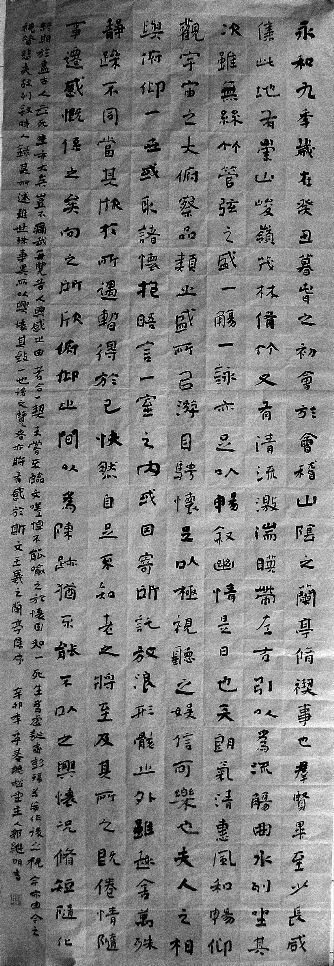 永和九年歲在癸丑暮春之初會於會稽山陰之蘭亭脩禊事也羣賢畢至少長咸
集此地有崇山峻嶺茂林脩竹又有清流激湍暎帶左右引以為流觴曲水列坐其
次雖無絲竹管弦之盛一觴一詠亦足以暢敘幽情是日也天朗氣清惠風和暢仰
觀宇宙之大俯察品類之盛所以游目騁懷足以極視聽之娛信可樂也夫人之相
與俯仰一世或取諸懷抱晤言一室之內或因寄所託放浪形骸之外雖趣舍萬殊
靜躁不同當其欣於所遇暫得於己快然自足不知老之將至及其所之既倦情隨
事遷感慨係之矣向之所欣俯仰之間以為陳跡猶不能不以之興懷況脩短隨化
終期於盡古人云死生亦大矣豈不痛哉每覽昔人興感之由若合一契未嘗不臨文嗟悼不能喻之於懷固知一死生為虛誕齊彭殤為妄作後之視今亦由今之
視昔悲夫故列敘時人錄其所述雖世殊事異所以興懷其致一也後之覽者亦將有感於斯文王羲之蘭亭序 辛卯年